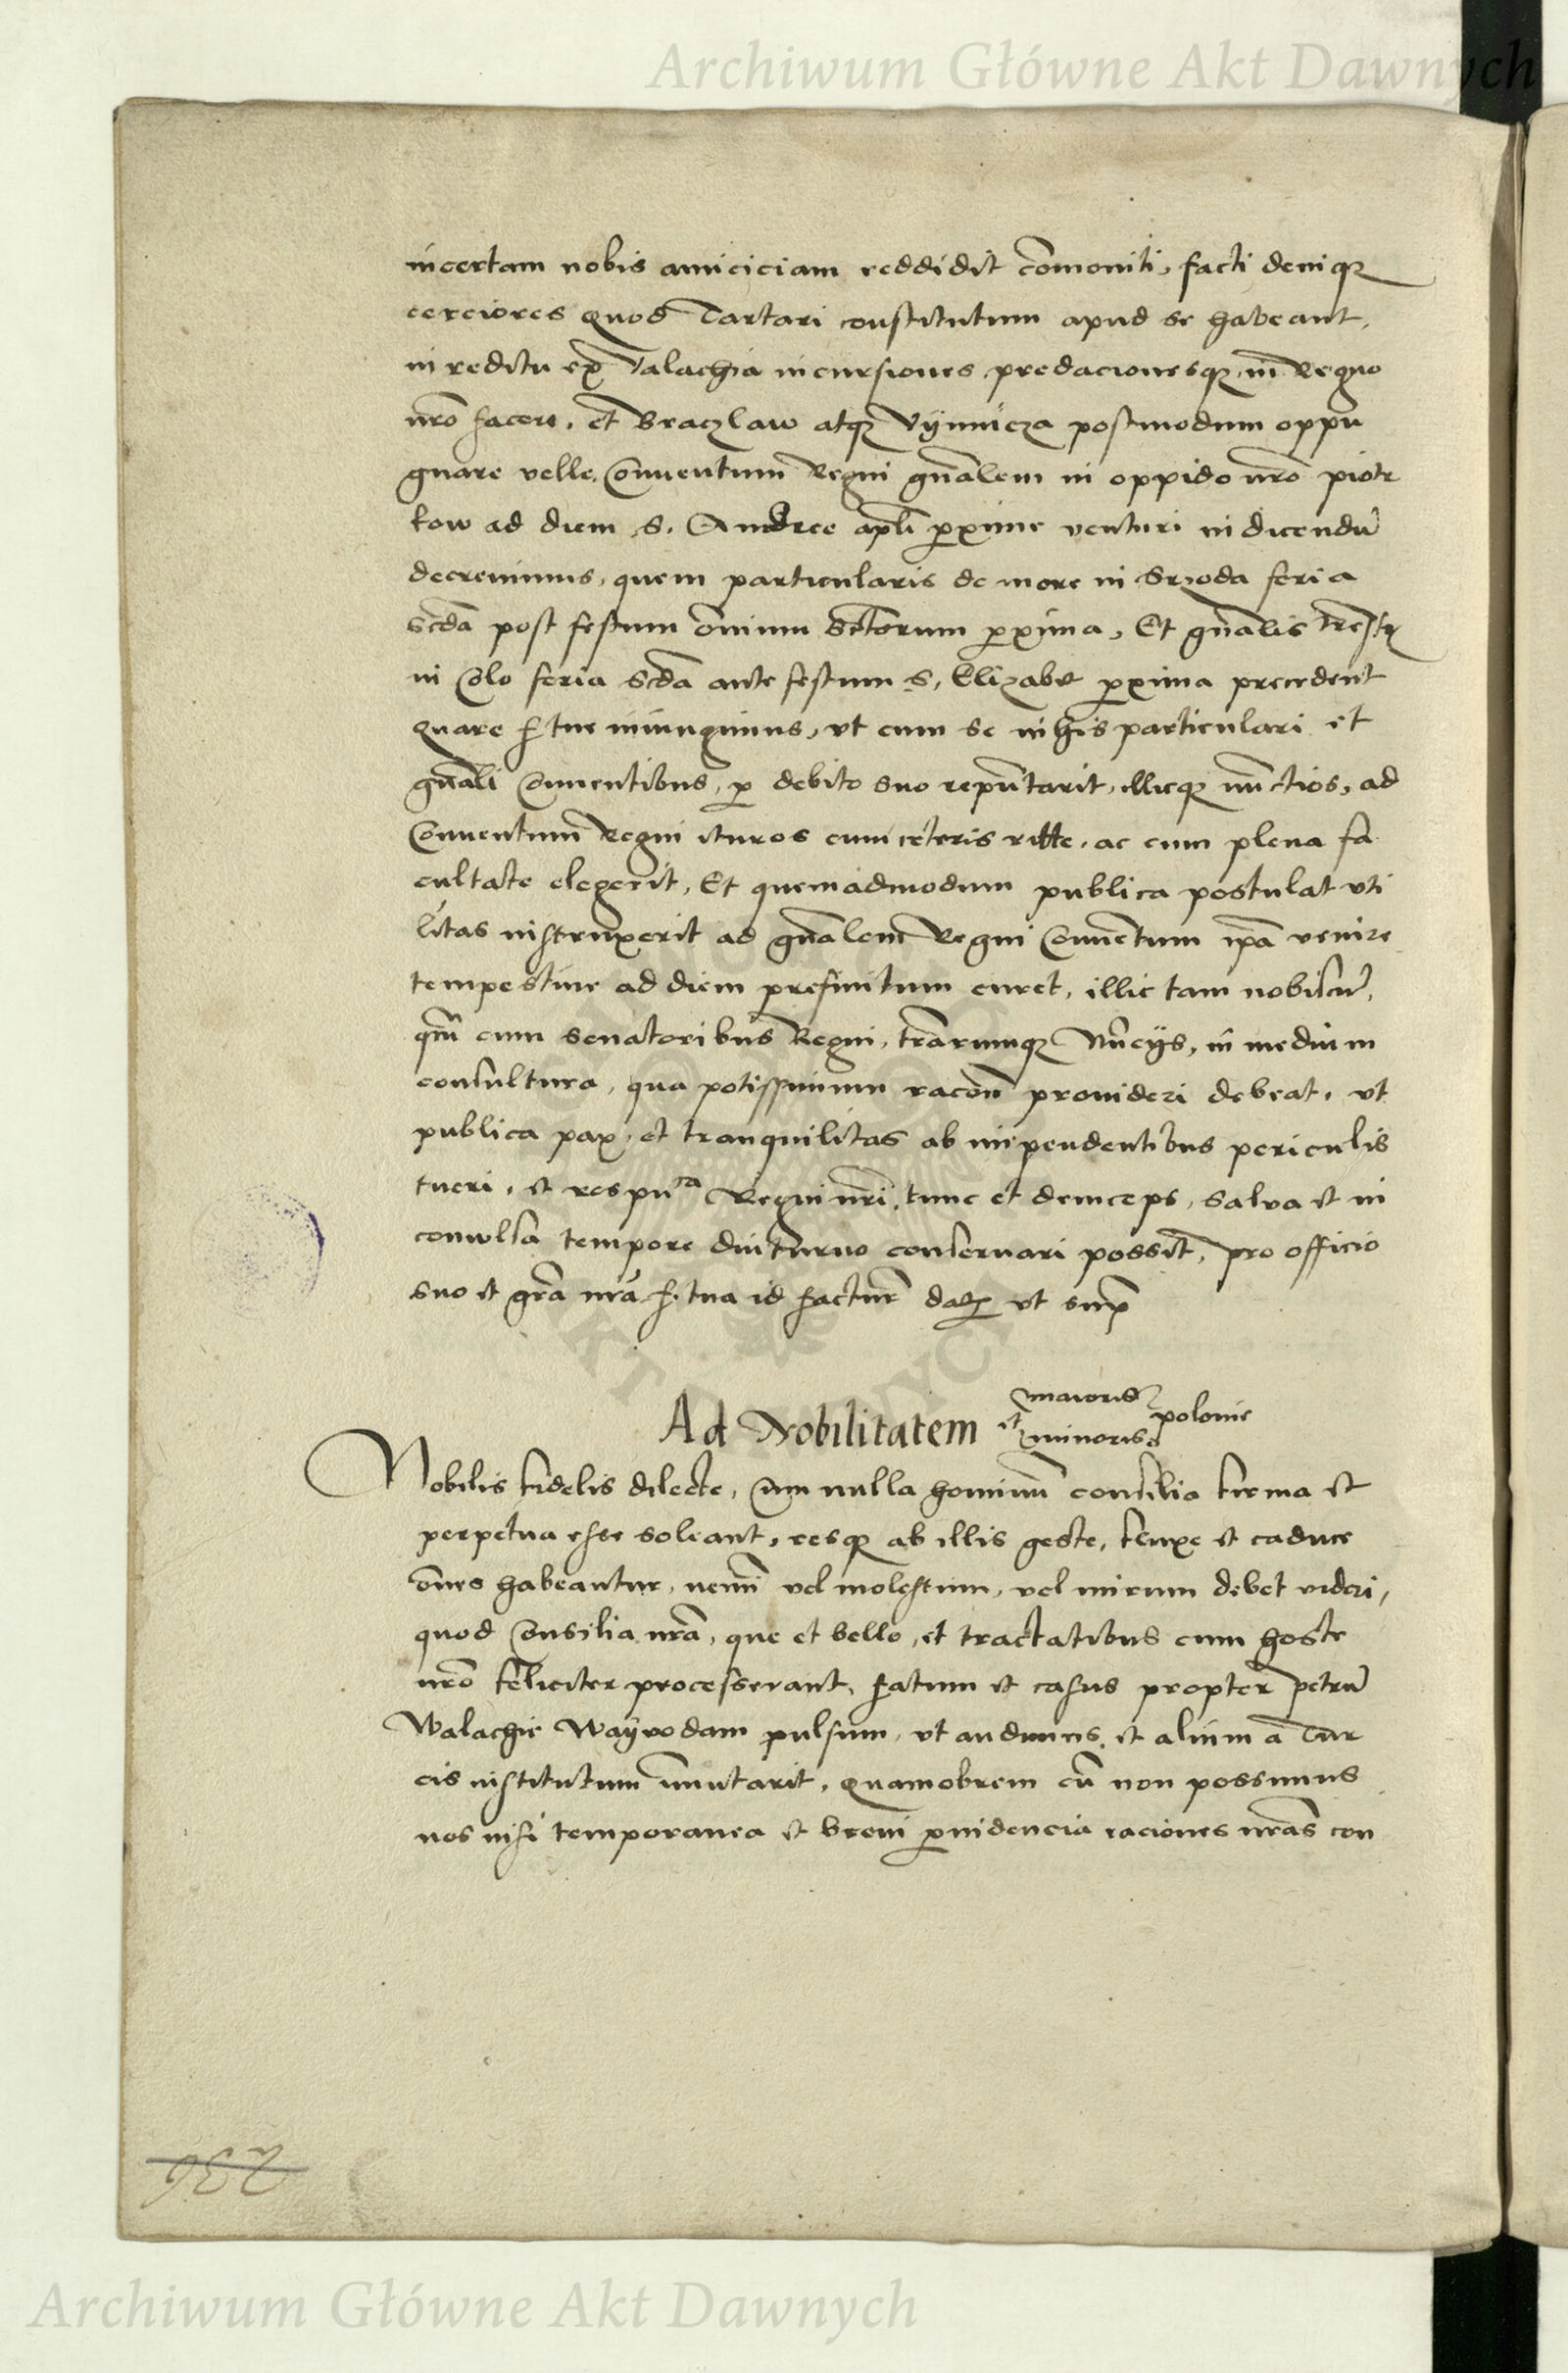 Archiwum Główne Akt Dawnych
incertam nobis amiciciam reddidit com̄oniti, facti deniqꝫ
cerciores quod Tartari constitutum apud se habeant,
in reditu ex Valachia incursiones predacionesqꝫ in Regno
nr̄o facere, et Braczlaw atqꝫ Vÿnnicza postmodum oppu
gnare velle, Conventum Regni gn̄alem in oppido nr̄o piotr
kow ad diem S. Andree apl̄i ꝓxime venturi indicendū
decrevimus, quem particularis de more in Srzoda feria
scd̄a post festum om̄nium Sctōrum ꝓxima, Et gn̄alis
in Colo feria scd̄a ante festum S. Elizabet ꝓxima precedent
quare f tue iniungimus, ut cum se in his particulari et
gn̄ali Conventibus, ꝓ debito suo repn̄tarit, illicqꝫ nūctios, ad
Conventum Regni ituros cum ceteris ritte, ac cum plena fa
cultate elegerit, Et quemadmodum publica postulat uti
litas instruxerit ad gn̄alem Regni Conventum ip̄a venire
tempestive ad diem prefinitum curet, illic tam nobiscū,
qm̄ cum senatoribus Regni, trārumqꝫ Nūcÿs, in medium
consultura, qua potissimum racōn provideri debeat, ut
publica pax, et tranquilitas ab impendentibus periculis
tueri, et respuca Regni nr̄i, tunc et deinceps, salva et in
convulsa tempore diuturno conservari possit, pro officio
suo et grā nr̄a f. tua id factur̄ dat ut supꝫ
Ad Nobilitatem maioris et minoris polonie
Nobilis fidelis dilecte, Cum nulla hominū consilia firma et
perpetua esse soleant, resqꝫ ab illis geste, fluxe et caduce
om̄nes habeantur, nemini vel molestum, vel mirum debet videri,
quod Consilia nr̄a, que et bello, et tractatibus cum hoste
nr̄o feliciter processerant, fatum et casus propter petrū
Walachie Waÿvodam pulsum, ut audimus, et alium a Tur
cis institutum im̄utarit, quamobrem cū non possumus
nos nisi temporanea et brevi ꝓvidencia raciones nr̄as con
236
Archiwum Główne Akt Dawnych